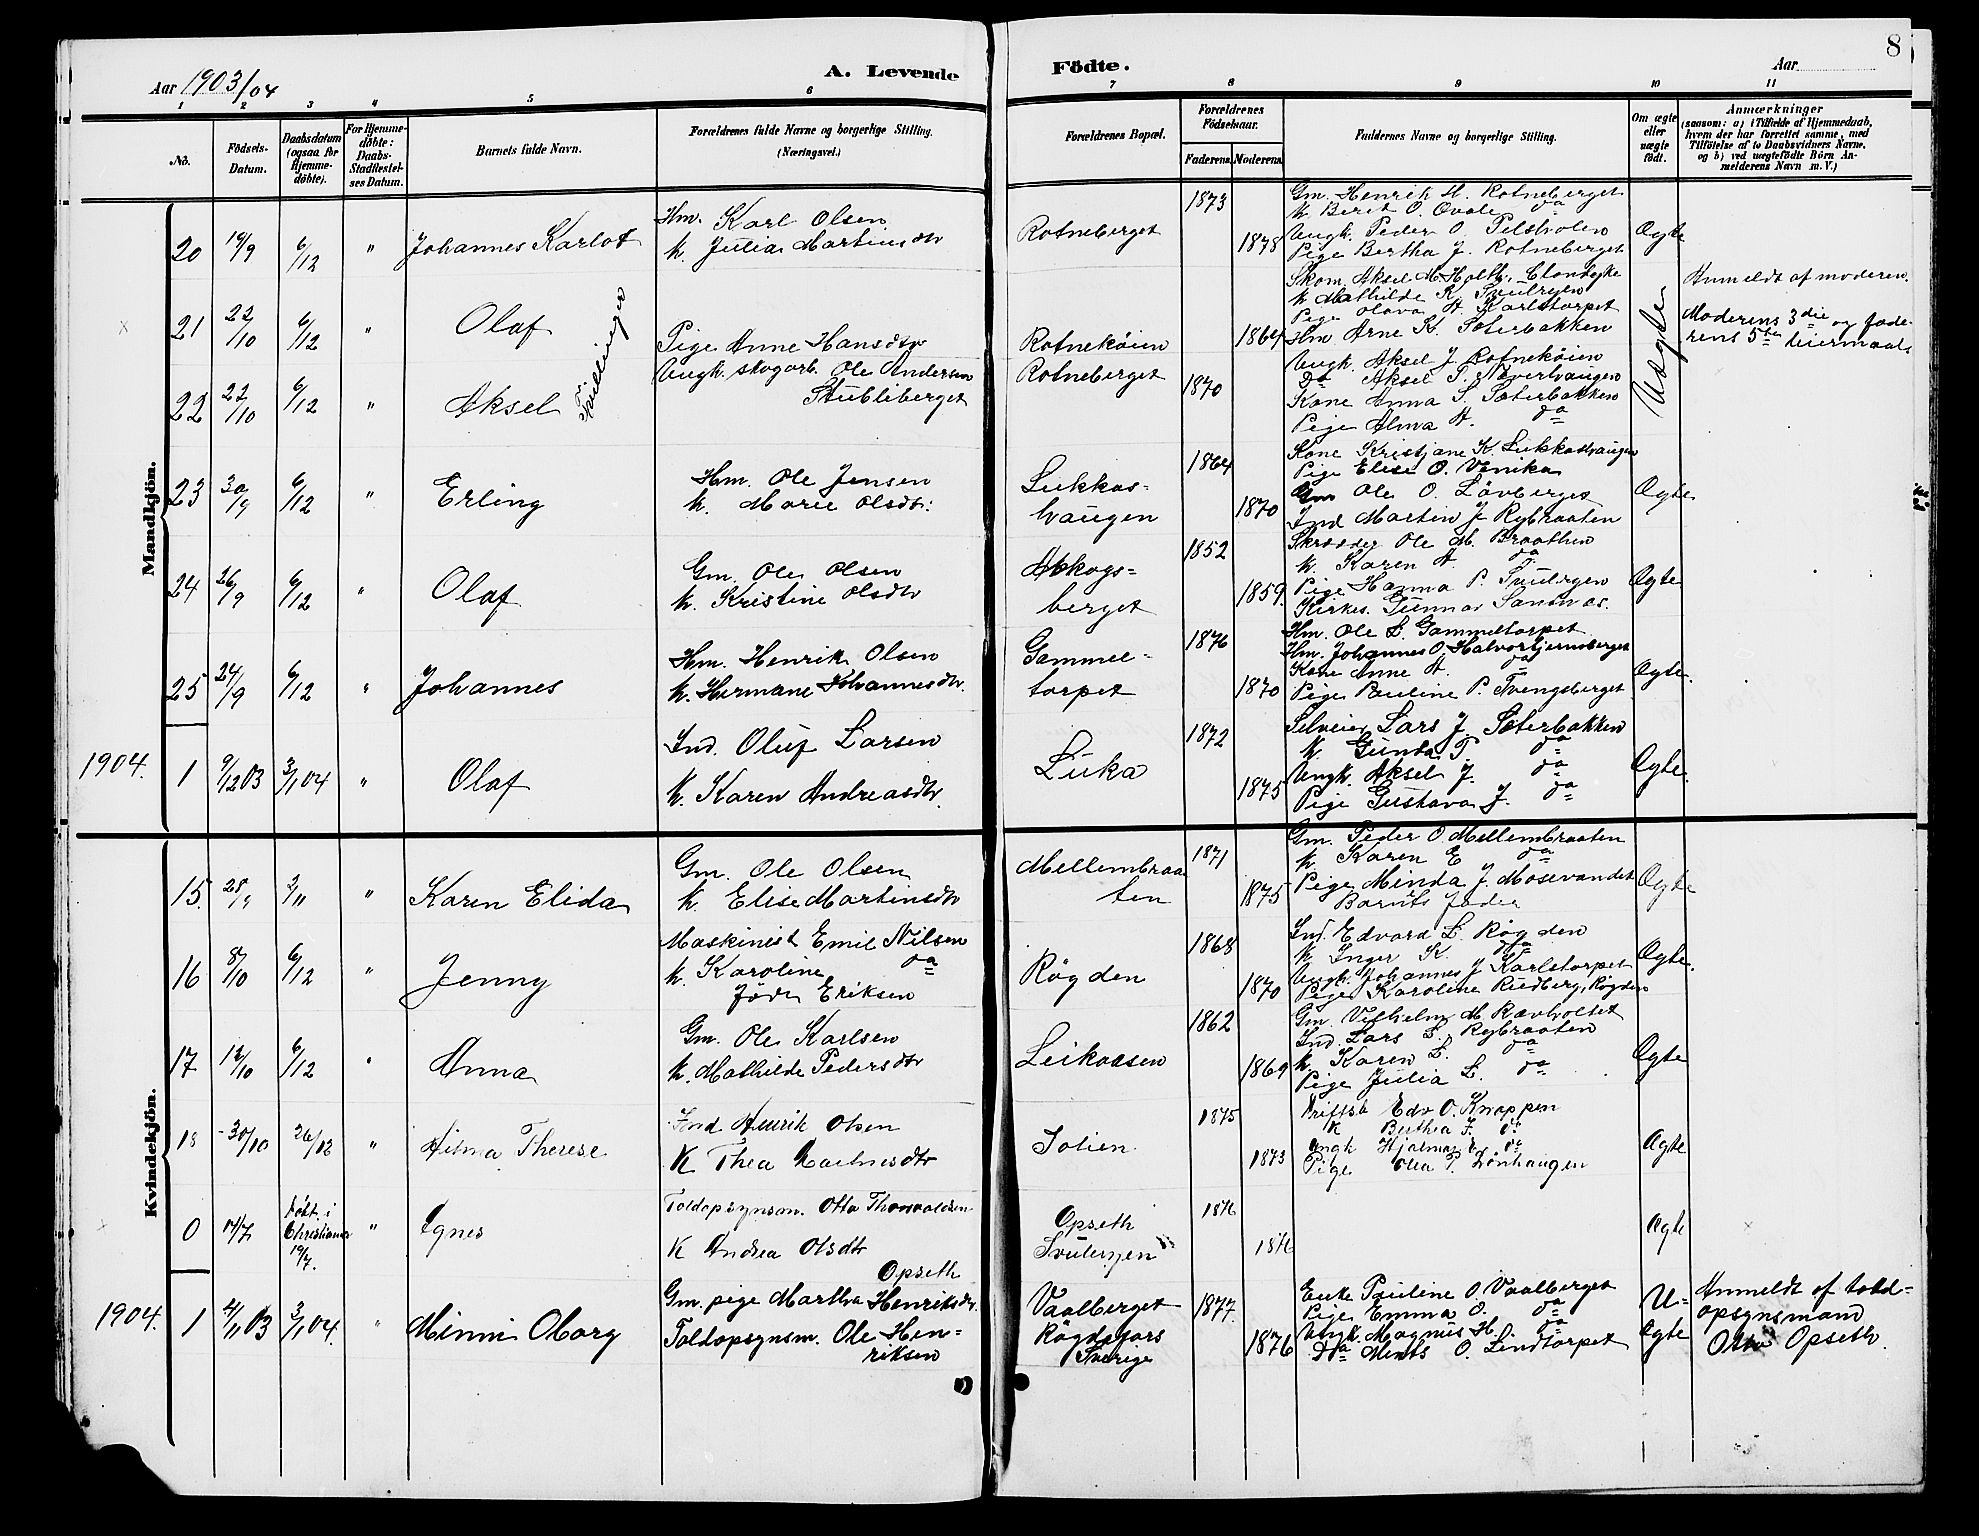 8
Aar 1903/04
A. Levende
Födte.
Aar
1 2 3 4 5 6 7 8 9 10 11
No.
Födsels-Datum.
Daabsdatum (ogsaa for Hjemme-döbte).
For Hjemme-döbte: Daabs-Stadfæstel-ses Datum.
Barnets fulde Navn.
Forældrenes fulde Navne og borgerlige Stilling.
(Næringsvei.)
Forældrenes Bopæl.
Forældrenes Födselsaar.
Faderens. Moderens.
Faddernes Navne og borgerlige Stilling.
Om ægte eller uægte födt.
Anmærkninger
(saasom: a) i Tilfælde af Hjemmedaab, hvem der har forrettet samme, med Tilföielse af to Daabsvidners Navne, og b) ved uægtefödte Börn An-melderens Navn m. V.)
Mandkjön.
20 19/9 6/12 " Johannes Karlot
Hm. Karl Olsen
K. Julia Martinsdtr
Rotneberget
1873
1878
Gm. Henrik H. Rotneberget
K. Berit O. Ovale
Ungk. Peder O.
Pige Bertha J. Rotneberget
Ægte
21 22/10 6/12 " Olaf
Tvillinger
Pige Anne Hansdtr
Rotnekøien
1864
K. Mathilde K. Svulryen
Pige Olava A. Karlstorpet
Hm Arne K. Sæterbakken
Uægte
Anmeldt af moderen.
Moderens 3die og fade-
rens 5te leiermaal.
22 22/10 6/12 " Aksel
Ungk. skogarb. Ole Andersen
Stubliberget
Rotneberget
1870
Ungk. Aksel J. Rotnekøien
Do Aksel T. Neverhaugen
Kone Anna S. Sæterbakken
Pige Alma A. do
23 30/9 6/12 " Erling
Hm. Ole Jensen
K. Marie Olsdtr:
Lukkas-
haugen
1864
1870
Kone Kristjane K. Lukkashaugen
Pige Elise O. Venika
Gm Ole O. Lövberget
Ind Martin J. Rybraaten
Ægte
24 26/9 6/12 " Olaf
Gm. Ole Olsen
K. Kristine Olsdtr
Abbogs-
berget
1852
1859.
Skrædder Ole M. Braathen
K. Karen A. do
Pige Hanna P. Svulryen
Kirkes. Gunnar Sandnæs.
Ægte
25 24/9 6/12 " Johannes
Hm. Henrik Olsen
K. Hermane Johannesdtr.
Gammel-
torpet
1876
1870
Hm. Ole L. Gammeltorpet
Hm. Johannes O. Halvorstjernsberget
Kone Anne A. do
Pige Pauline P. Tvengsberget
Ægte.
1904. 1 9/12 03 3/1 04 " Olaf
Ind. Oluf Larsen
K. Karen Andreasdtr.
Luka
1872
1875
Selveier Lars J. Sæterbakken
K. Gunda T. do
Ungk. Aksel J. do
Pige Gustava J. do
Ægte.
Kvindekjön.
15. 28/9 2/11 " Karen Elida
Gm. Ole Olsen
K. Elise Martinsdtr
Mellembraa
ten
1871
1875
Gm. Peder O Mellembraaten
K Karen E do
Pige Minda J. Mosevandet
Barnets fader
Ægte
16 8/10 6/12 " Jenny
Maskinist Emil Nilsen
K. Karoline do
född Eriksen
Røgden
1868
1870
Ind. Edvard L. Røgden
K Inger K. do
Ungk. Johannes J Karlstorpet
Pige Karoline Rudberg, Røgden
Ægte.
17 12/10 6/12 " Anna
Gm. Ole Karlsen
K. Mathilde Pedersdtr
Leikaasen
1862
1869
Gm. Vilhelm M Rævholtet
Ind. Lars L. Rybraaten
K. Karen L. do
Pige Julia L. do
Ægte
18 30/10 26/12 " Hilma Therese
Ind Henrik Olsen
K Thea
Solien.
1875
1873
Driftsb Edv O. Knappen
K Berthea F. do
Ungk Hjalmar E do
Pige Olea P. Lönhaugen
Ægte
0 14/7 Døbt i Christiania 19/7. " Agnes
Toldopsynsm. Otto Thorvaldsen
K Andrea Olsdtr
Opseth
Opseth
Svulryen
1876
1876
Ægte
1904. 1 4/11 03 3/1 04. " Minni Oborg
Gm. pige Martha Henriksdtr.
Toldopsynsm. Ole Hen-
riksen
Vaalberget
Røgdsfors
Sverige
1877.
1876
Enke Pauline O. Vaalberget
Pige Emma O. do
Ungk. Magnus H. do
Do Mints O. Lindtorpet
U-
ægte
Anmeldt af told-
opsynsmand
Otto Opseth.